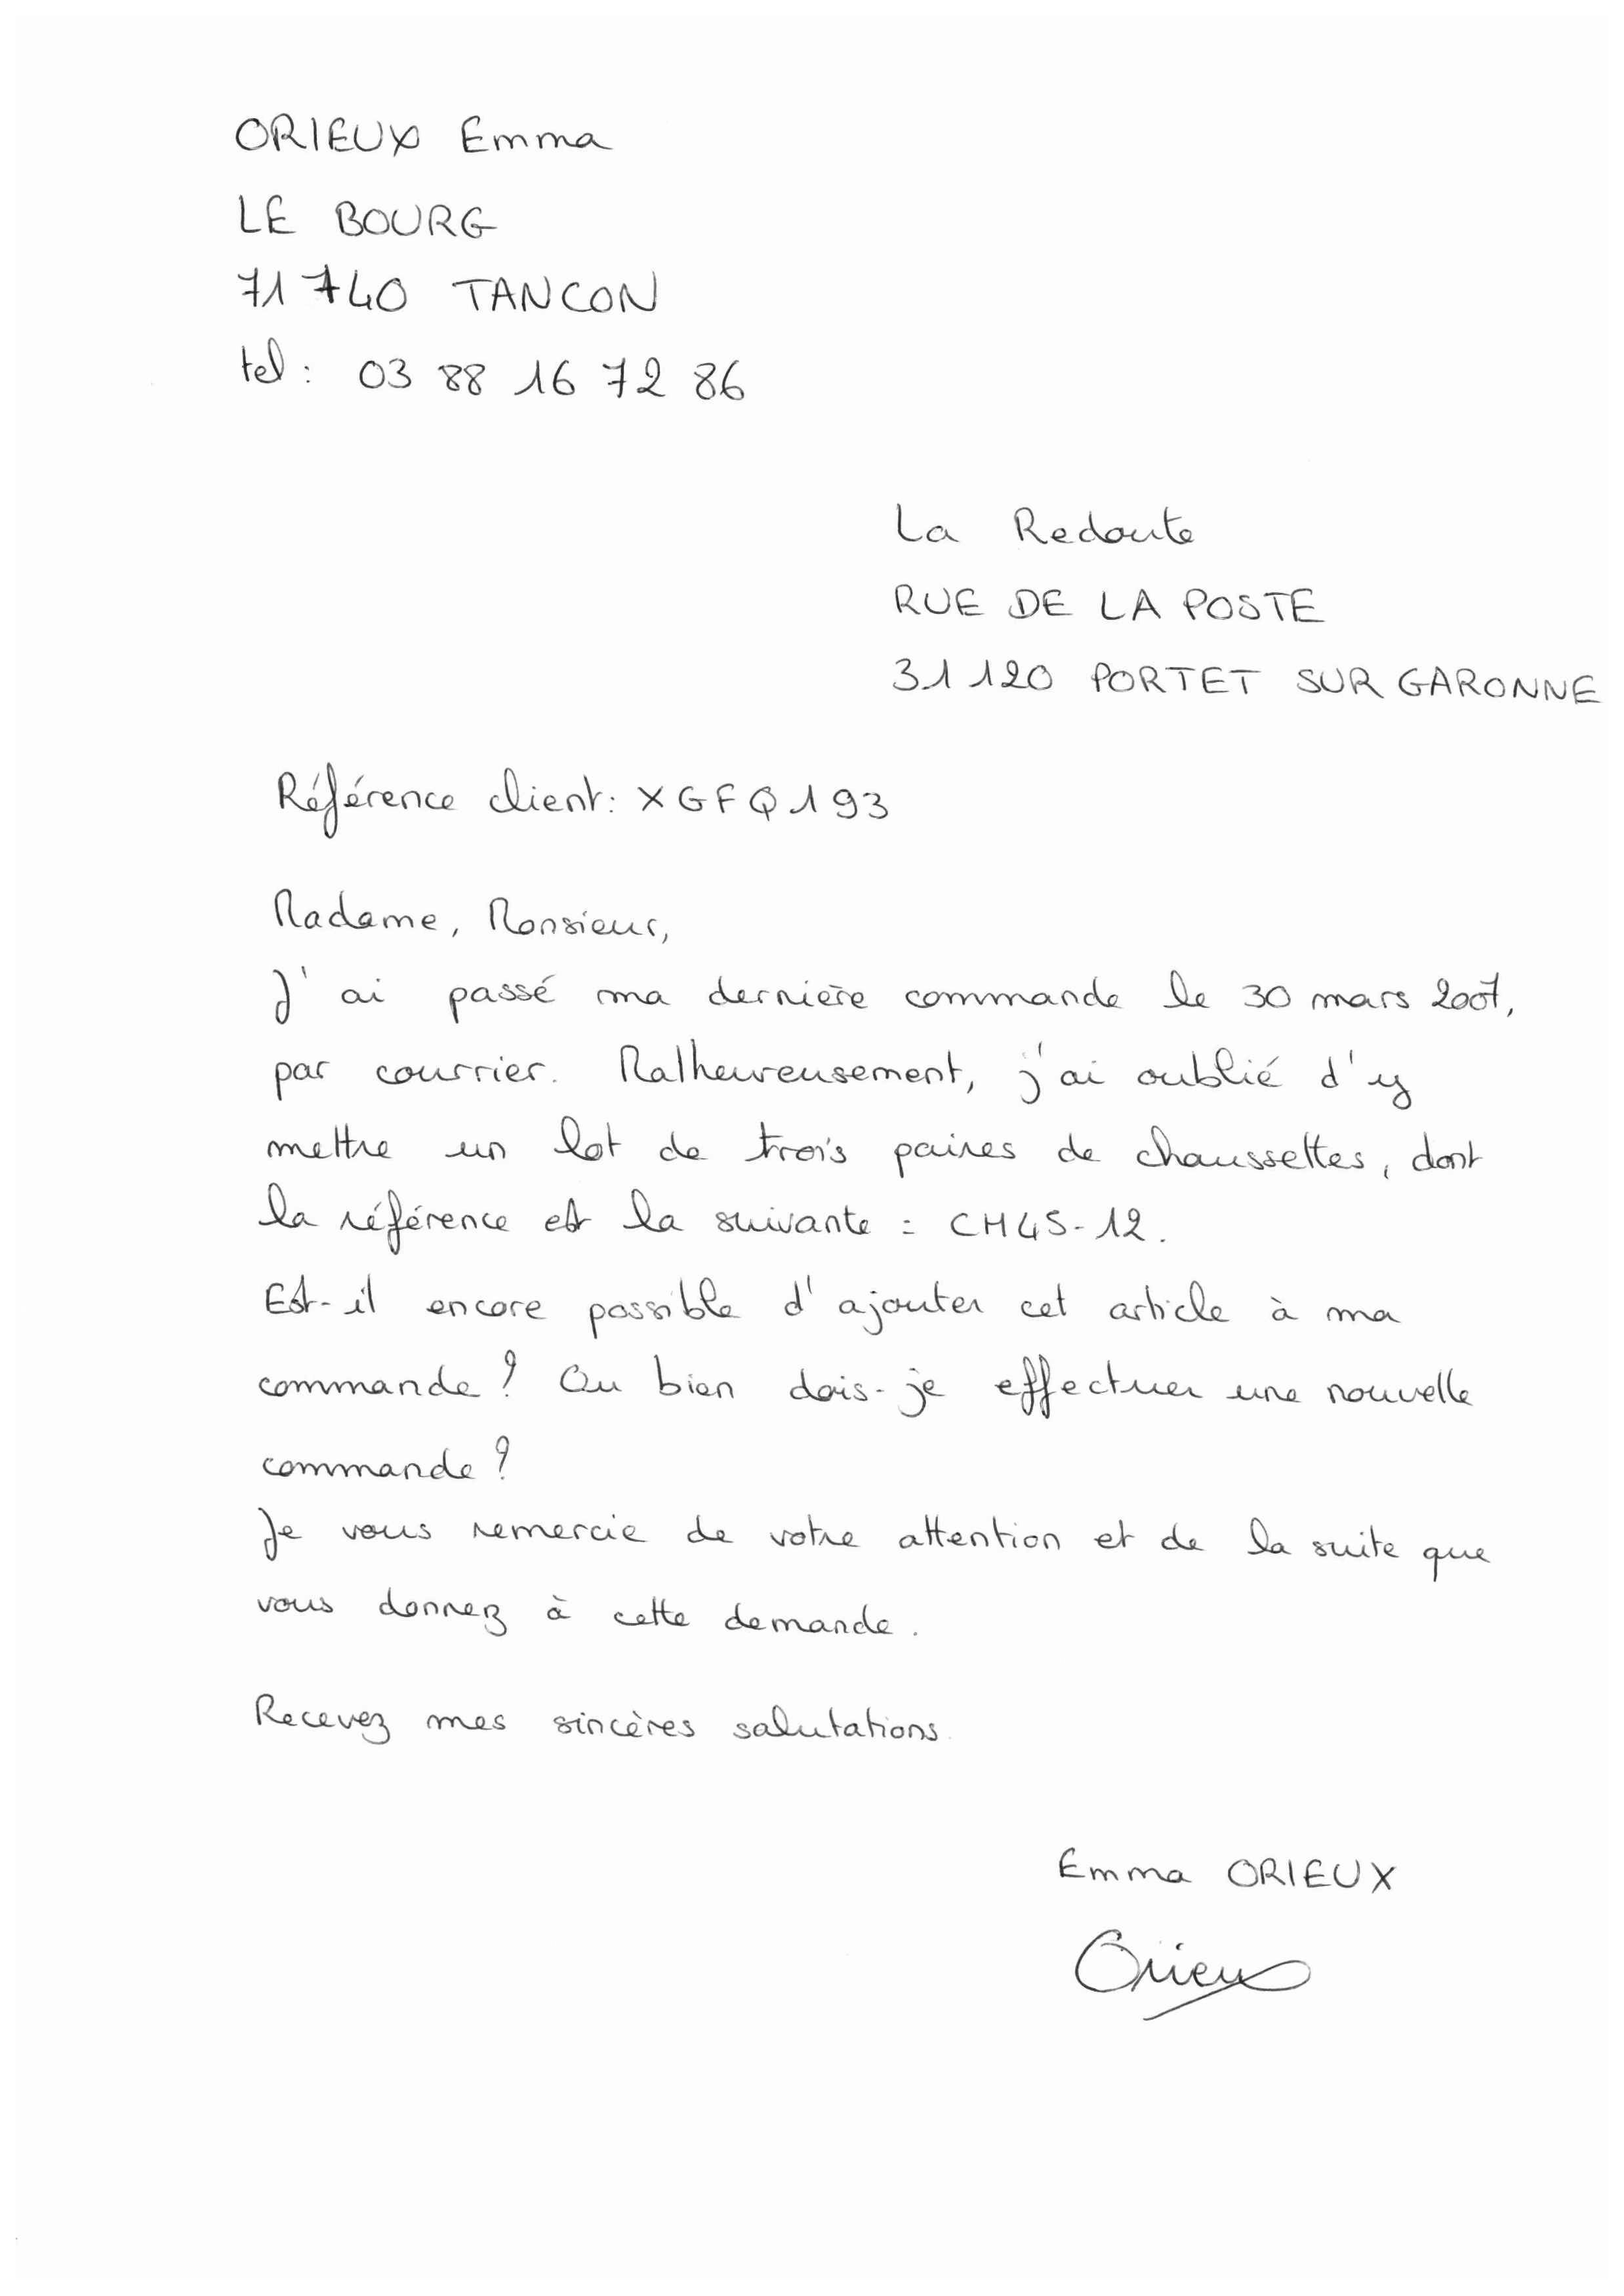 ORIEUX Emma
LE BOURG
71740 TANCON
tel : 03 88 16 72 86
La Redoute
RUE DE LA POSTE
31120 PORTET SUR GARONNE
Référence client : XGFQ193
Madame, Monsieur,
J'ai passé ma dernière commande le 30 mars 2007,
par courrier. Malheureusement, j'ai oublié d'y
mettre un lot de trois paires de chaussettes, dont
la référence est la suivante : CH4S-12.
Est-il encore possible d'ajouter cet article à ma
commande ? Ou bien dois-je effectuer une nouvelle
commande ?
Je vous remercie de votre attention et de la suite que
vous donnez à cette demande.
Recevez mes sincères salutations.
Emma ORIEUX
Orieux